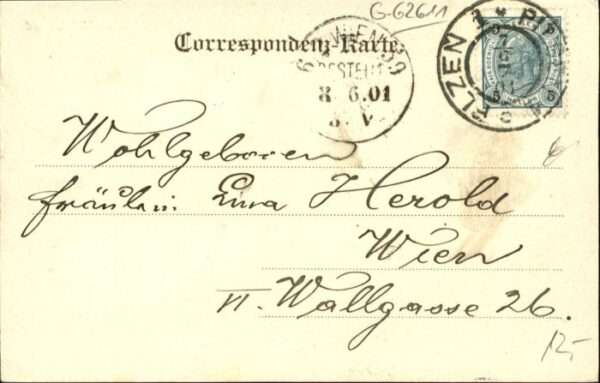 G-62611
Correspondenz-Karte.
WIEN
BESTELLT
8 6.01
8. V
PILZEN 1
5 5
Wohlgeboren
Fräulein Ema Herold
Wien
VI. Wallgasse 26.
12,-